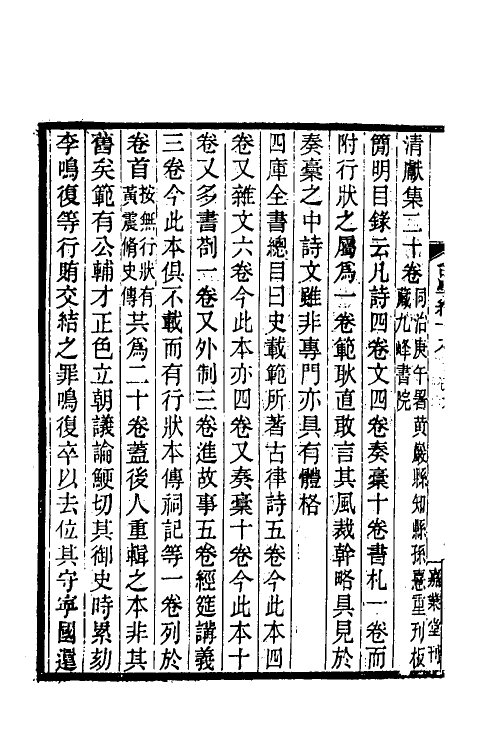 清獻集二十卷同治庚午署黃巖縣知縣孫憙重刊板藏九峰書院
簡明目錄云凡詩四卷文四卷奏稾十卷書札一卷而
附行狀之屬爲一卷範耿直敢言其風裁幹略具見於
奏稾之中詩文雖非專門亦具有體格
四庫全書總目曰史載範所著古律詩五卷今此本四
卷又雜文六卷今此本亦四卷又奏稾十卷今此本十
卷又多書劄一卷又外制三卷進故事五卷經筵講義
三卷今此本俱不載而有行狀本傳祠記等一卷列於
卷首按無行狀有黃震脩史傳共爲二十卷蓋後人重輯之本非其
舊矣範有公輔才正色立朝議論鯁切其御史時累劾
李鳴復等行賄交結之罪鳴復卒以去位其守寧國還
嘉業堂刊